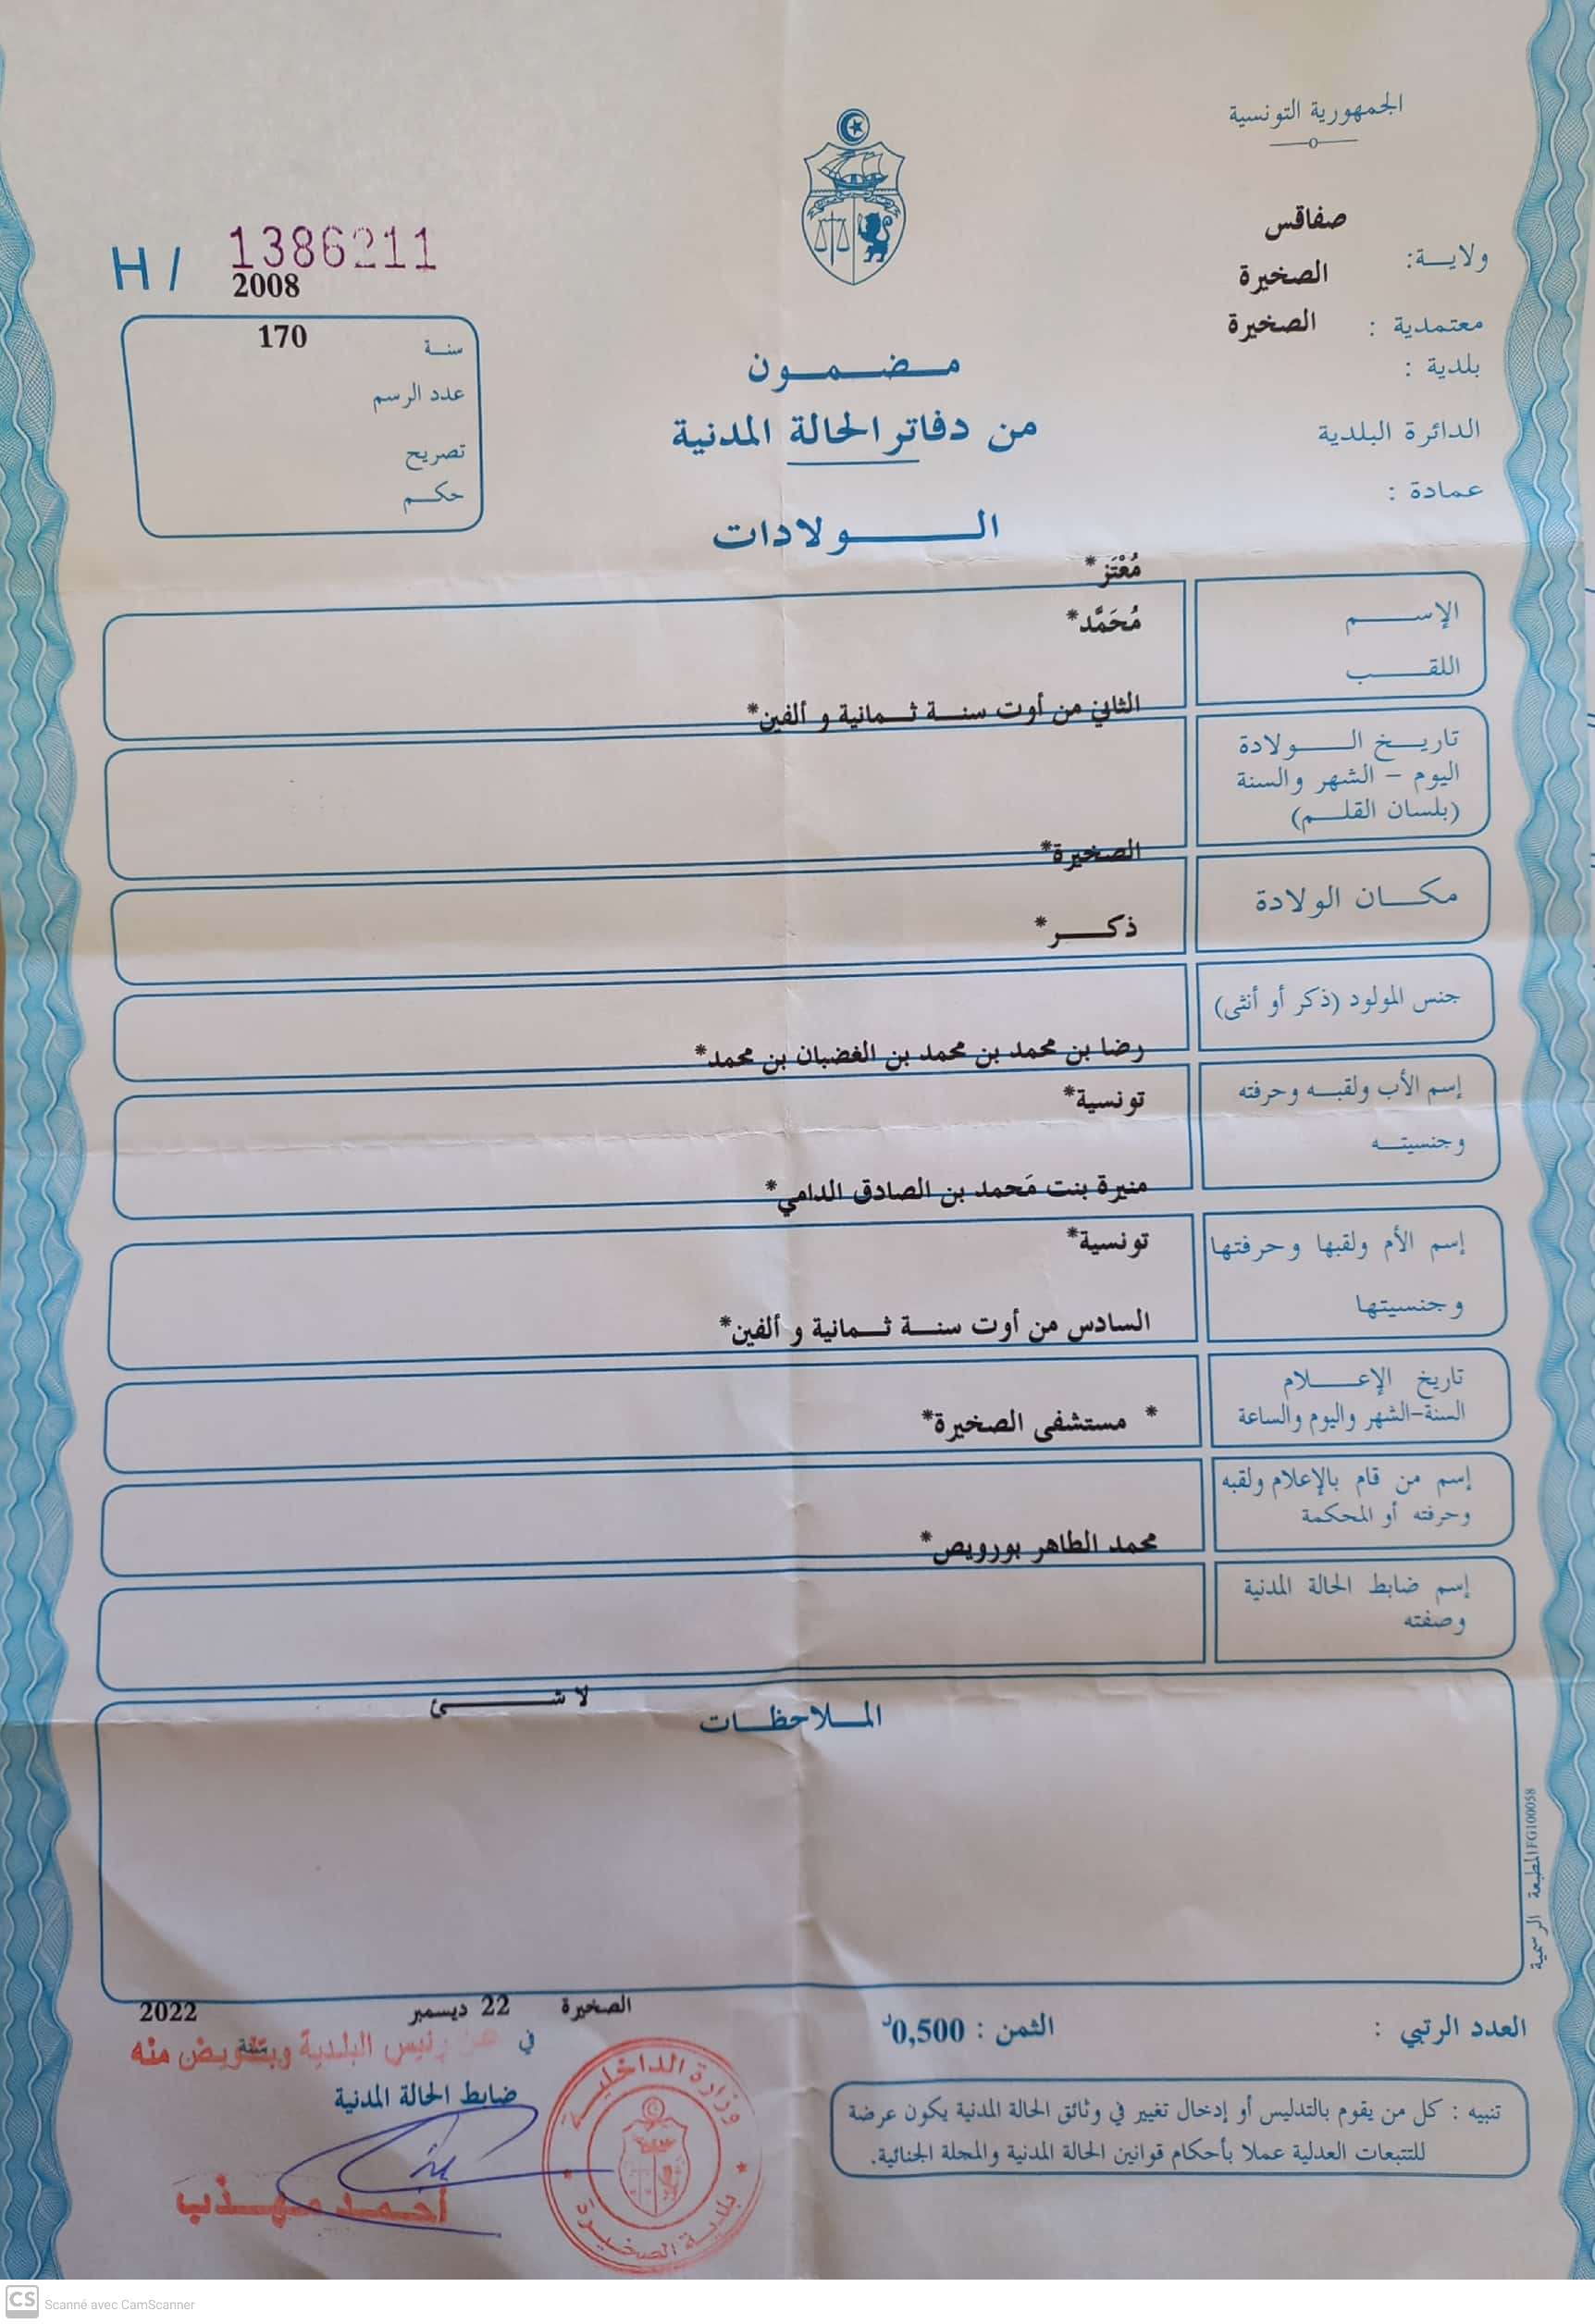 الجمهورية التونسية
صفاقس
ولاية:
الصخيرة
معتمدية :
الصخيرة
بلدية :
الدائرة البلدية
عمادة :
H / 1386211
2008
170
سنة
عدد الرسم
تصريح
حكم
مضمون
من دفاتر الحالة المدنية
الولادات
مُعْتَز*
الإسم
مُحَمَّد*
اللقب
الثاني من أوت سنة ثمانية و ألفين*
تاريخ الولادة
اليوم - الشهر والسنة
(بلسان القلم)
الصخيرة*
مكان الولادة
ذكر*
جنس المولود (ذكر أو أنثى)
رضا بن محمد بن محمد بن الغضبان بن محمد*
إسم الأب ولقبه وحرفته
تونسية*
وجنسيته
منيرة بنت مَحمد بن الصادق الدامي*
إسم الأم ولقبها وحرفتها
تونسية*
وجنسيتها
السادس من أوت سنة ثمانية و ألفين*
تاريخ الإعلام
السنة-الشهر واليوم والساعة
* مستشفى الصخيرة*
إسم من قام بالإعلام ولقبه
وحرفته أو المحكمة
محمد الطاهر بورويص*
إسم ضابط الحالة المدنية
وصفته
لا شئ
الملاحظات
المطبعة الرسمية FG100058
الصخيرة 22 ديسمبر 2022
العدد الرتبي :
الثمن : 0,500د
في
عن رئيس البلدية وبتفويض منه
ضابط الحالة المدنية
أحمد مهذب
وزارة الداخلية
بلدية الصخيرة
تنبيه : كل من يقوم بالتدليس أو إدخال تغيير في وثائق الحالة المدنية يكون عرضة
للتتبعات العدلية عملا بأحكام قوانين الحالة المدنية والمجلة الجنائية.
CS Scanné avec CamScanner